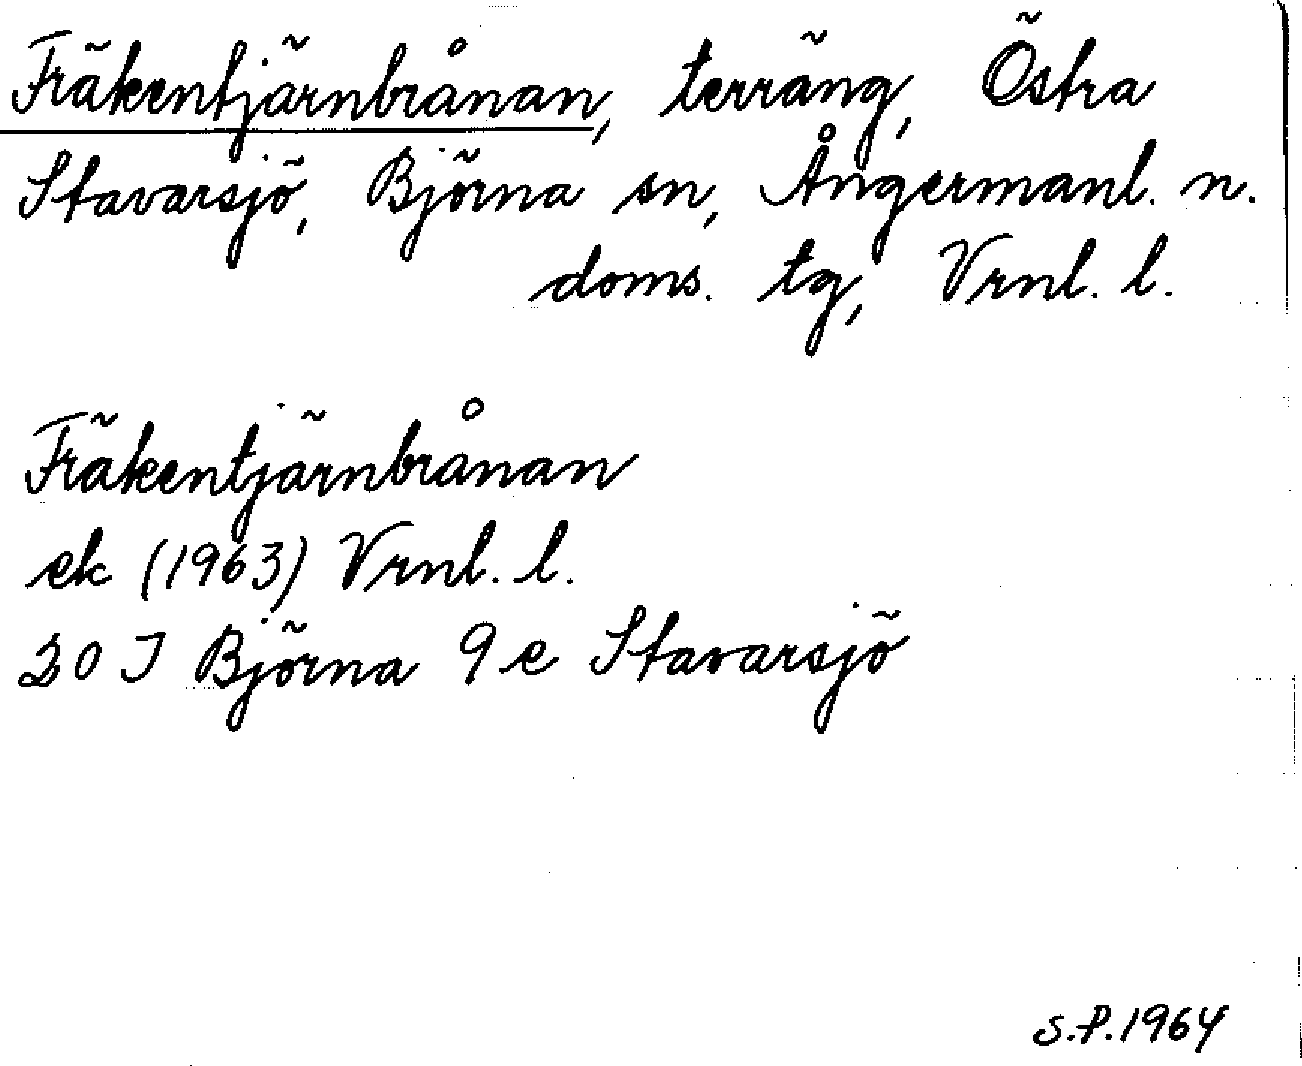 Fräkentjärnbrånan, terräng, Östra
Stavarsjö, Björna sn, Ångermanl. n.
doms. tg, Vrnl. l.
Fräkentjärnbrånan
ek (1963) Vrnl. l.
20 I Björna 9 e Stavarsjö
S.P. 1964